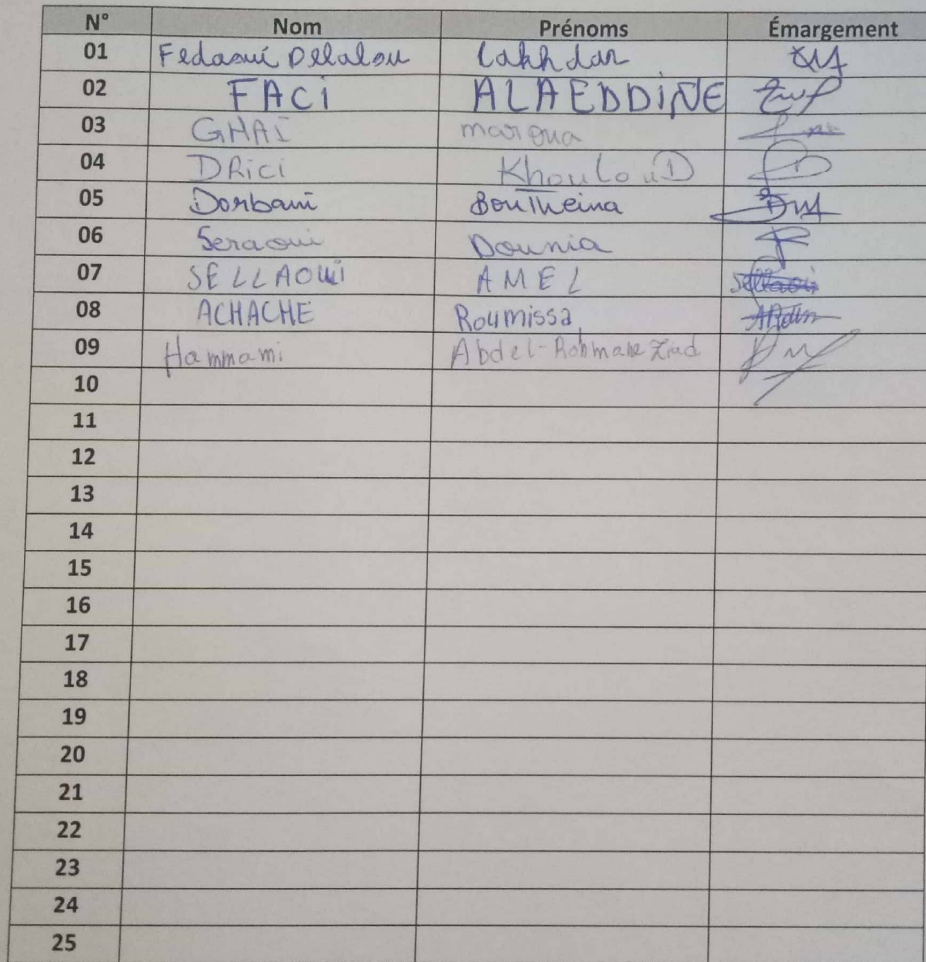 N° Nom Prénoms Émargement
01 Fedaoui Delalou Lakhdar
02 FACi ALAEDDINE
03 GHAI maroua
04 DRici KhoulouD
05 Dorbani Boutheina
06 Seraoui Dounia
07 SELLAOUi AMEL Sellaoui
08 ACHACHE Roumissa
09 Hammami Abdel-Rahmane Ziad
10
11
12
13
14
15
16
17
18
19
20
21
22
23
24
25